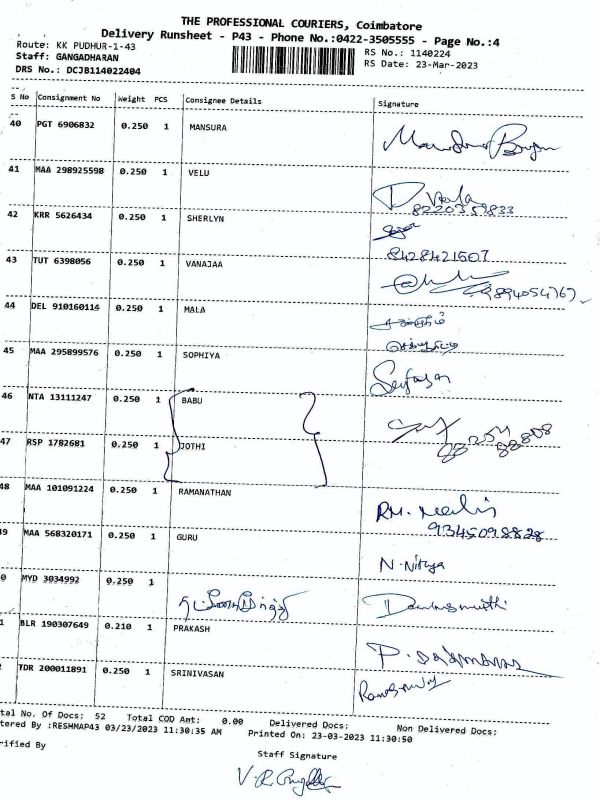 THE PROFESSIONAL COURIERS, Coimbatore
Delivery Runsheet - P43 - Phone No.:0422-3505555 - Page No.:4
Route: KK PUDHUR-1-43
RS No.: 1140224
Staff: GANGADHARAN
RS Date: 23-Mar-2023
DRS No.: DCJB114022404
S No Consignment No Weight PCS Consignee Details Signature
40 PGT 6906832 0.250 1 MANSURA
41 MAA 298925598 0.250 1 VELU
8220359833
42 KRR 5626434 0.250 1 SHERLYN
8428421507
43 TUT 6398056 0.250 1 VANAJAA
9894054767
44 DEL 910160114 0.250 1 MALA
45 MAA 295899576 0.250 1 SOPHIYA
46 NTA 13111247 0.250 1 BABU
47 RSP 1782681 0.250 1 JOTHI
48 MAA 101091224 0.250 1 RAMANATHAN
9345098828
49 MAA 568320171 0.250 1 GURU N. Nithya
0 MYD 3034992 0.250 1
1 BLR 190307649 0.210 1 PRAKASH
2 TDR 200011891 0.250 1 SRINIVASAN
tal No. Of Docs: 52 Total COD Amt: 0.00 Delivered Docs: Non Delivered Docs:
tered By :RESHMAP43 03/23/2023 11:30:35 AM Printed On: 23-03-2023 11:30:50
rified By
Staff Signature